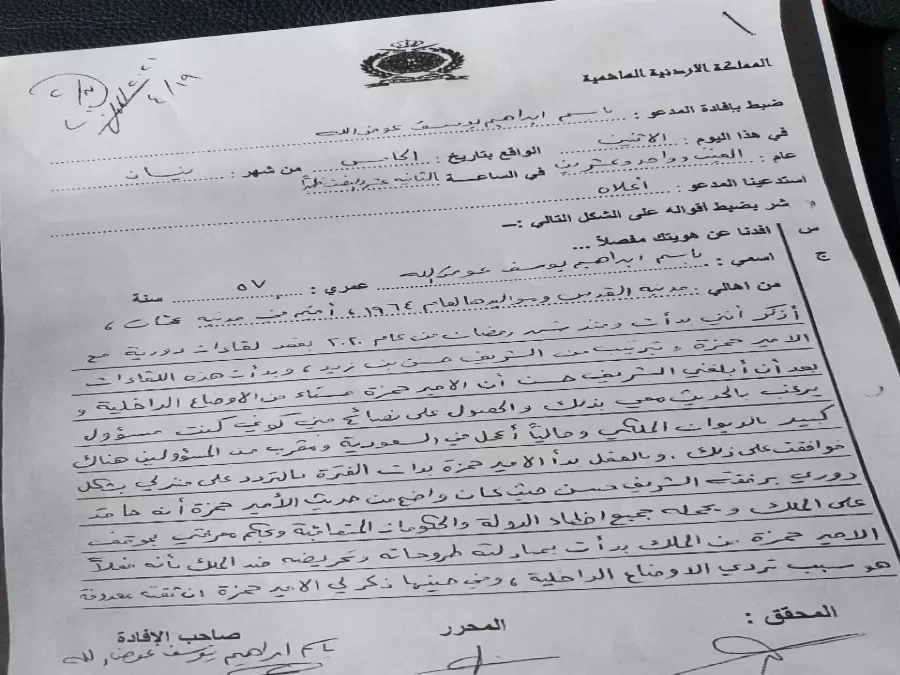 المملكة الاردنية الهاشمية
٤/١٩
ضبط بإفادة المدعو : باسم ابراهيم يوسف عوض الله
في هذا اليوم : الاثنين الواقع بتاريخ : الخامس من شهر : نيسان
عام : الفين وواحد وعشرين في الساعة الثانية عشر ونصف ظهراً
استدعينا المدعو : أعلاه
شر بضبط اقواله على الشكل التالي :–
س افدنا عن هويتك مفصلاً ...
ج اسمي : باسم ابراهيم يوسف عوض الله عمري : ٥٧ سنة
من اهالي : مدينة القدس ومواليدها لعام ١٩٦٤ ، أعيش في مدينة عمان ،
أذكر أنني بدأت ومنذ شهر رمضان من عام ٢٠٢٠ بعقد لقاءات دورية مع
الامير حمزة وبترتيب من الشريف حسن بن زيد ، وبدأت هذه اللقاءات
بعد أن أبلغني الشريف حسن أن الامير حمزة مستاء من الاوضاع الداخلية و
يرغب بالحديث معي بذلك والحصول على نصائح مني كوني كنت مسؤول
كبير بالديوان الملكي وحالياً أعمل في السعودية ومقرب من المسؤولين هناك
فوافقت على ذلك . وبالفعل بدأ الامير حمزة بذات الفترة بالتردد على منزلي بشكل
دوري برفقة الشريف حسن حيث كان واضح من حديث الأمير حمزة أنه حاقد
على الملك و يحمله جميع اخطاء الدولة والحكومات المتعاقبة وبحكم معرفتي بموقف
الامير حمزة من الملك بدأت بمبادلته طروحاته وتحريضه ضد الملك بأنه فعلاً
هو سبب تردي الاوضاع الداخلية ، وفي حينها ذكر لي الامير حمزة ان
المحقق : المحرر صاحب الإفادة
باسم ابراهيم يوسف عوض الله